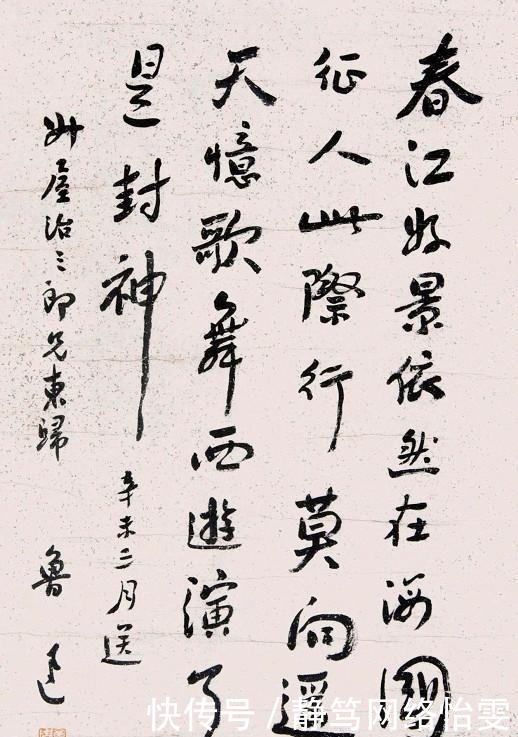 春江好景依然在海國
征人此際行莫向遥
天憶歌舞西遊演了
是封神 辛未二月送
升屋治三郎兄東歸 魯迅
快传号 / 静笃网络怡雯